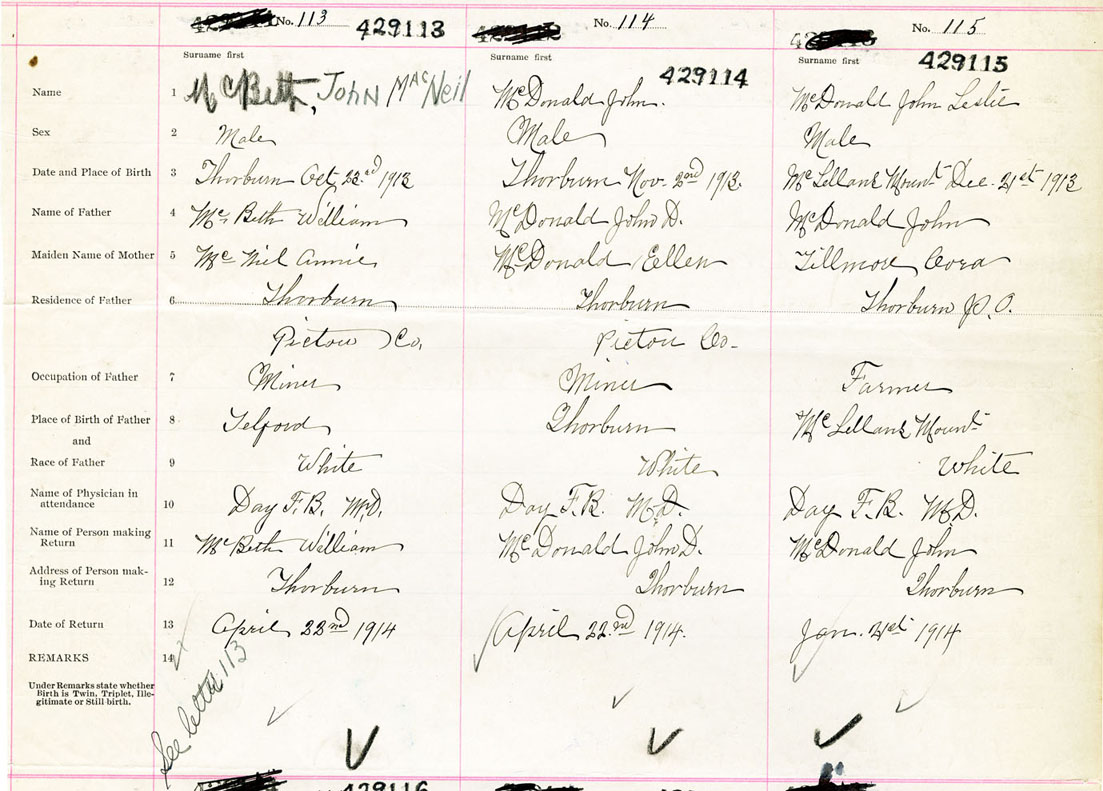 No. 113 429113 No. 114 No. 115
Surname first Surname first 429114 Surname first 429115
Name 1 McBeth, John MacNeil McDonald John. McDonald John Leslie
Sex 2 Male Male Male
Date and Place of Birth 3 Thorburn Oct. 23rd 1913 Thorburn Nov. 2nd 1913. McLellans Mount Dec. 21st 1913
Name of Father 4 McBeth William McDonald John D. McDonald John
Maiden Name of Mother 5 McNiel Annie McDonald Ellen Tillmore Cora
Residence of Father 6 Thorburn Thorburn Thorburn P.O.
Pictou Co. Pictou Co.
Occupation of Father 7 Miner Miner Farmer
Place of Birth of Father 8 Telford Thorburn McLellans Mount
and
Race of Father 9 White White White
Name of Physician in
attendance 10 Day F.B. M.D. Day F.B. M.D. Day F.B. M.D.
Name of Person making
Return 11 McBeth William McDonald John D. McDonald John
Address of Person mak-
ing Return 12 Thorburn Thorburn Thorburn
Date of Return 13 April 22nd 1914 April 22nd 1914. Jan. 21st 1914
REMARKS 14
Under Remarks state whether
Birth is Twin, Triplet, Ille-
gitimate or Still birth.
See letter 113
429116